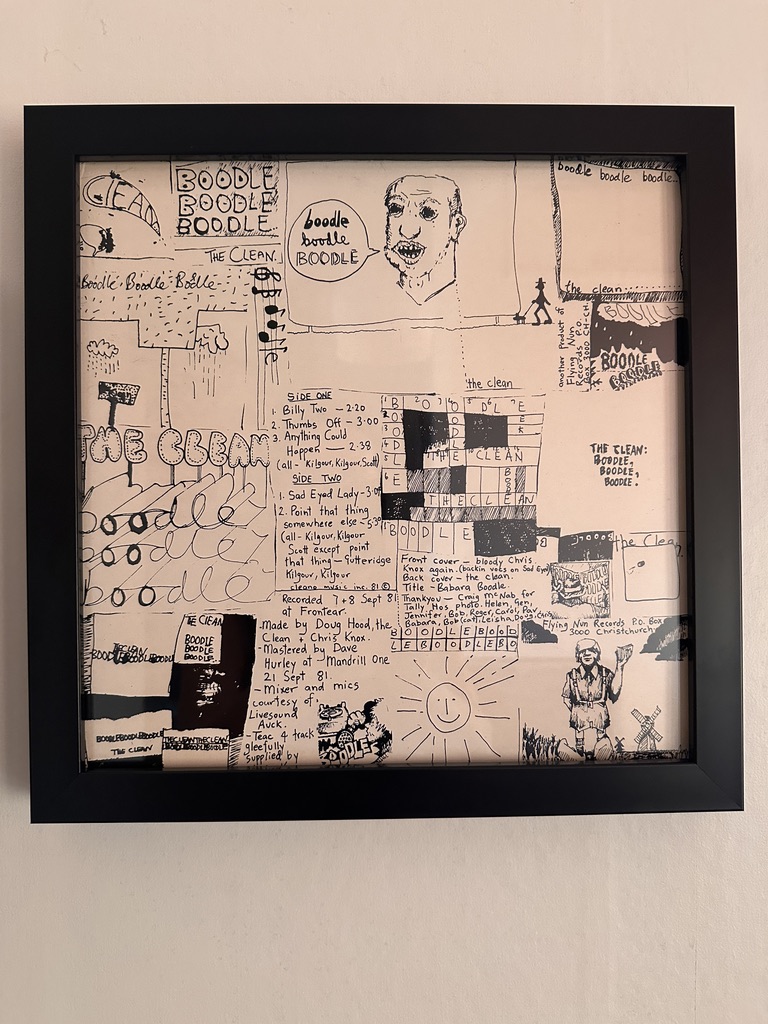 CLEAN
BOODLE
BOODLE
BOODLE
THE CLEAN.
Boodle. Boodle Bodle
boodle
boodle
BOODLE
boodle boodle boodle..
the clean.....
another product of
Flying Nun
Records P.O.
Box 3000 CH.CH.
BOODLE
BOODLE
BOODLE
the clean
SIDE ONE
1. Billy Two — 2.20
2. Thumbs Off — 3.00
3. Anything Could
Happen — 2.38
(all - Kilgour, Kilgour, Scott)
SIDE TWO
1. Sad Eyed Lady - 3.0
2. Point that thing
somewhere else - 5.3
(all - Kilgour, Kilgour
Scott except point
that thing - Gutteridge
Kilgour, Kilgour
cleano music inc. 81 ©
BOODLE
THE CLEAN
THE CLEAN
BOODLE
THE CLEAN:
BOODLE,
BOODLE,
BOODLE.
THE CLEAN
boodle
boodle
boodle
the Clean
Front cover - bloody Chris
Knox again. (backin vokes on Sad Eyed)
Back cover - the clean.
Title - Babara Boodle.
Thankyou - Craig McNab for
Tally Hos photo. Helen, Gen,
Jennifer, Bob, Roger, Carol, Pav
Babara, Bob (cat), Leisha, Doug
BOODLEBOOD
LEBOODLEBO
Flying Nun Records P.O. Box
3000 Christchurch
Recorded 7+8 Sept 81
at Frontear.
-Made by Doug Hood, the
Clean & Chris Knox.
-Mastered by Dave
Hurley at Mandrill One
21 Sept 81.
- Mixer and mics
courtesy of
Livesound
Auck.
-Teac 4 track
gleefully
supplied by
THE CLEAN
BOODLE
BOODLE
BOODLE.
THE CLEAN
BOODLEBOODLEBOODLE
THE CLEAN
BOODLE